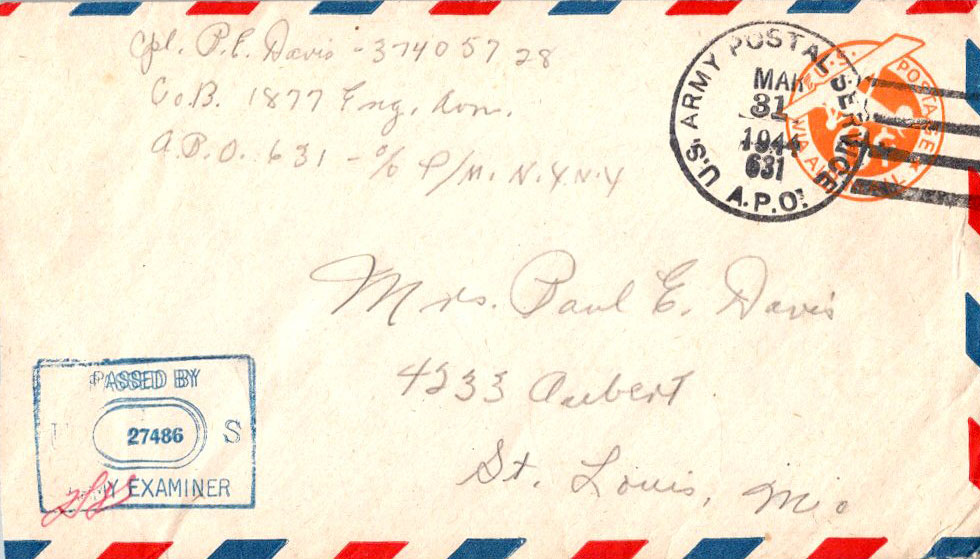 Cpl. P.E. Davis - 37405728
Co B. 1877 Eng. Avn.
A.P.O. 631 - c/o P/M. N.Y.N.Y
U.S. ARMY POSTAL SERVICE
MAR
31
1944
631
A.P.O.
U.S. POSTAGE
VIA AIR MAIL
Mrs. Paul E. Davis
4233 Aubert
St. Louis, Mo
PASSED BY
U S
27486
ARMY EXAMINER